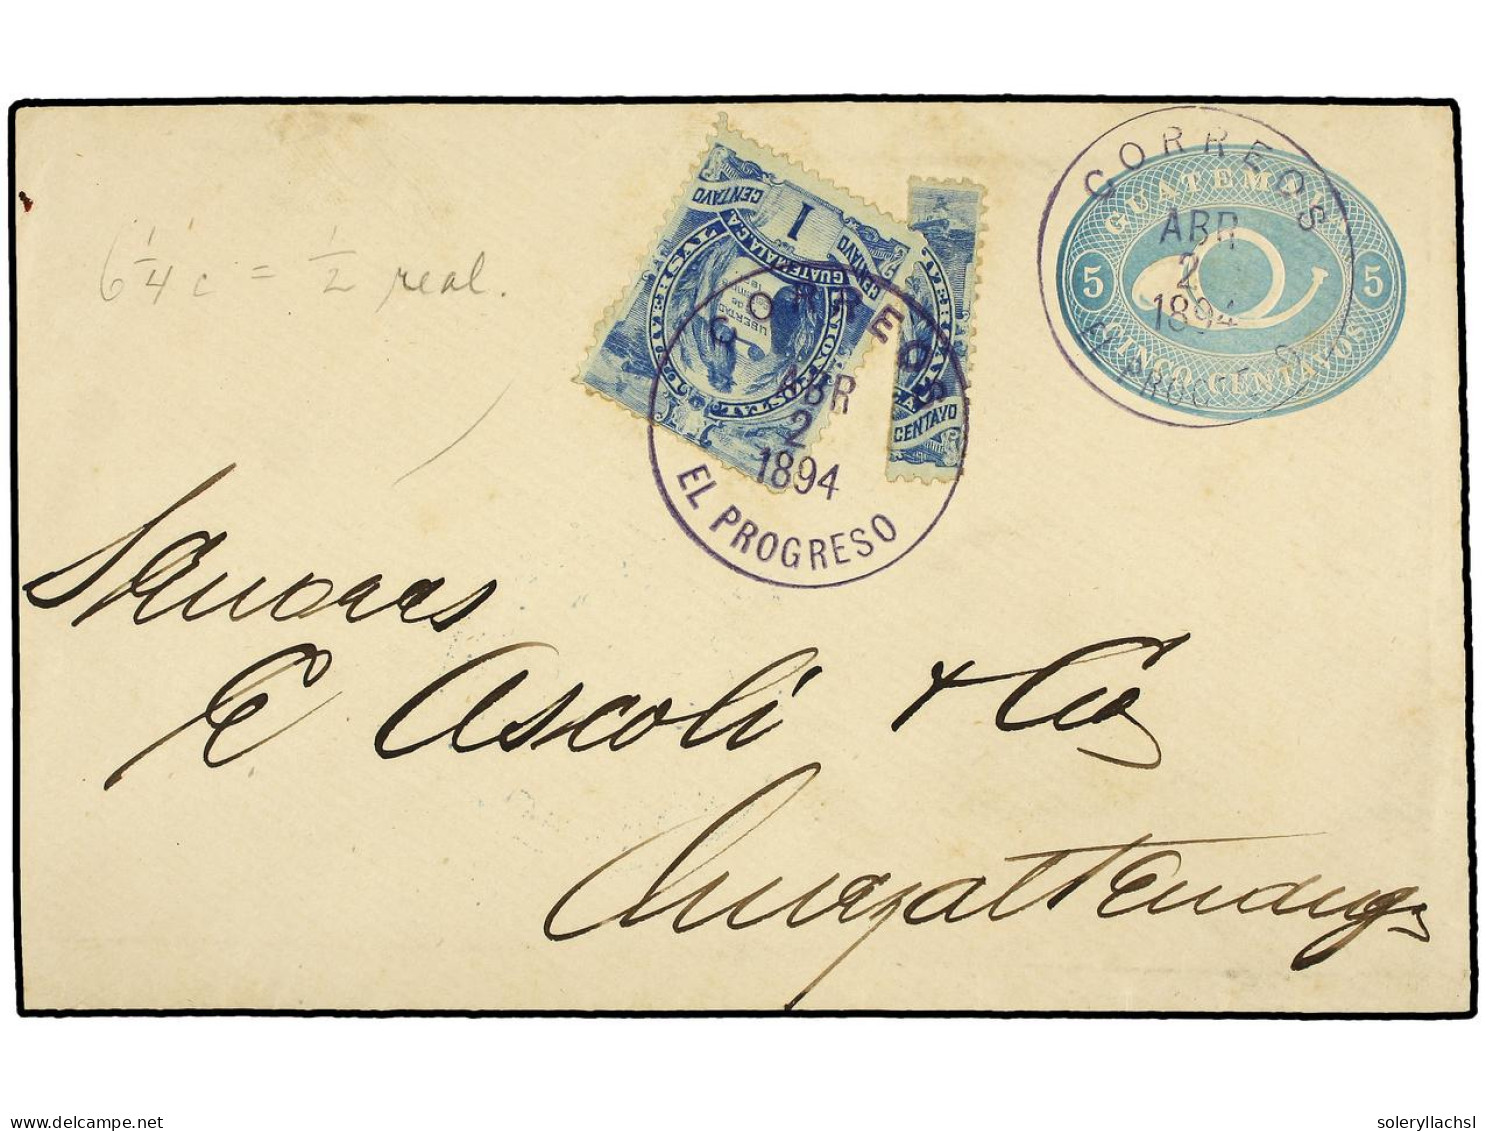 6 1/4 c = 1/2 real.
CENTAVO 1 CENTAVO
GUATEMALA C.A.
LIBERTAD
CENTAVO
CORREOS
ABR
2
1894
EL PROGRESO
GUATEMALA
5 5
CINCO CENTAVOS
CORREOS
ABR
2
1894
EL PROGRESO
E Ascoli + Cia
delcampe.net
soleryllachsl